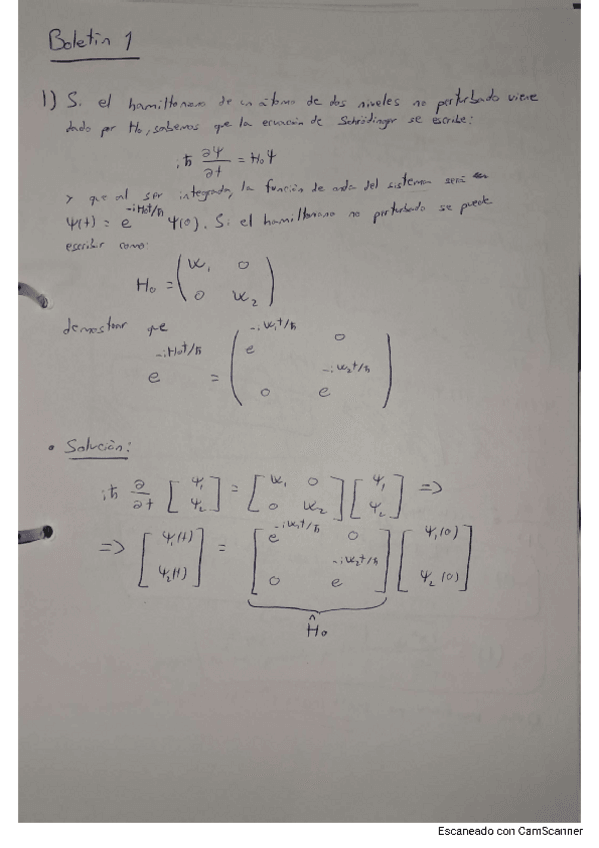 Boletín 1
1) Si el hamiltoniano de un átomo de dos niveles no perturbado viene
dado por H₀, sabemos que la ecuación de Schrödinger se escribe:
iħ ∂Ψ/∂t = H₀Ψ
y que al ser integrada, la función de onda del sistema será
Ψ(t) = e^{-iH₀t/ħ} Ψ(0). Si el hamiltoniano no perturbado se puede
escribir como:
H₀ = (W₁ 0
0 W₂)
demostrar que
e^{-iH₀t/ħ} = (e^{-iW₁t/ħ} 0
0 e^{-iW₂t/ħ})
• Solución:
iħ ∂/∂t [Ψ₁ Ψ₂] = [W₁ 0
0 W₂] [Ψ₁ Ψ₂] =>
=> [Ψ₁(t) Ψ₂(t)] = [e^{-iW₁t/ħ} 0
0 e^{-iW₂t/ħ}] [Ψ₁(0) Ψ₂(0)]
Ĥ₀
Escaneado con CamScanner